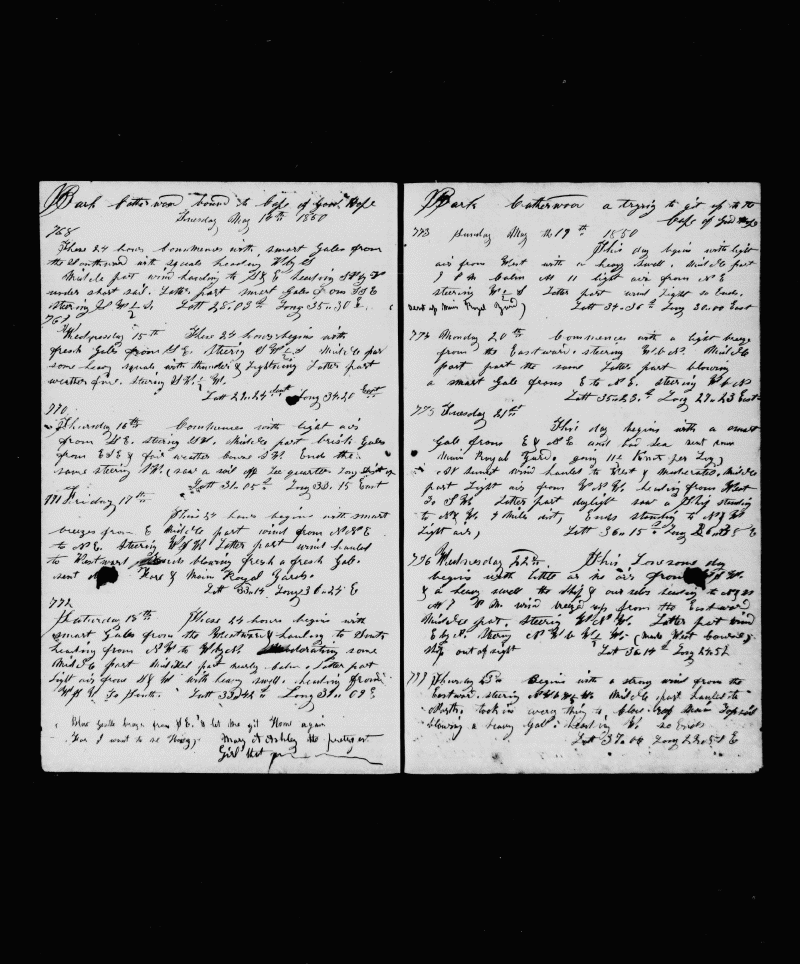 Bark Catherwood bound to Cape of Good Hope
Tuesday May 14th 1850
768
These 24 hours Commences with smart Gales from
the Southward with squals heading W by S
Middle part wind hauling to S & E heading SW by W
under short sail. Latter part smart Gales from SSE
steering W 1/2 S. Latt 28.03 Long 35.30 E.
769
Wednesday 15th These 24 hours begins with
fresh Gales from S E. steering W 1/2 S Middle par
some heavy squals with thunder & Lightning Latter part
weather fine. steering W.
Latt 29.24 South Long 34.20 East
770
Thursday 16th Commences with light airs
from S E. steering SW. Middle part brisk Gales
from ESE & fair weather course SW. Ends the
same steering SW. (saw a sail off Lee quarter
Latt 31.05 Long 33.15 East
771 Friday 17th
This 24 hours begins with smart
breezes from E Middle part wind from NNE
to N E. Steering Latter part wind hauled
to Westward blowing fresh a fresh Gale.
sent Fore & Main Royal Yards.
Latt 33.14 Long 30.24 E
772
Saturday 18th These 24 hours begins with
smart Gales from the Westward & hauling to South
heading from N W to W by N. Moderating some
Middle part nearly calm. Latter part
Light airs from with heavy swell. heading from
to South. Latt 33.42 Long 31.09 E
Blow Gentle breeze from S E. & let me git Home again
For I want to se Mary A Ashley the pretyest
Girl that
Bark Catherwood a trying to git up to the
Cape of Good Hope
773 Sunday May 19th 1850
This day begins with light
air from West with a heavy swell. Middle part
Calm light air from N E
steering W 1/2 S Latter part wind Light so Ends.
sent up Main Royal Yard) Latt 34.36 Long 30.00 East
774 Monday 20th Commences with a light breeze
from the Eastward. steering W b S. Middle
part the same Latter part blowing
a smart Gale from E to N E. steering W b S
Latt 35.23 Long 27.23 East
775 Tuesday 21st
This day begins with a smart
Gale from E & N E and bad sea sent down
Main Royal Yard. going 11 1/2 Knots per Log)
At sunset wind hauled to West & Moderated. Middle
part Light airs from W N W. heading from West
to S W. Latter part daylight saw a Ship standing
to N & W 4 Miles dist, Ends standing to N & W
Light airs, Latt 36.15 Long E
776 Wednesday 22nd. This Lonsome day
begins with little or no air from
& a heavy swell the Ship & our selves heading to
At 1 P M. wind breezed up from the Eastward
Middle part. steering W N W. Latter part wind
E by N. Steering (made West Course)
Ship out of sight Latt 36.14 Long 24.52
777 Thursday 23rd Begins with a strong wind from the
Eastward. steering Middle part hauled to
North. took in every thing to close reef Main Topsail
blowing a heavy Gale. heading W. so Ends
Latt 37.00 Long E